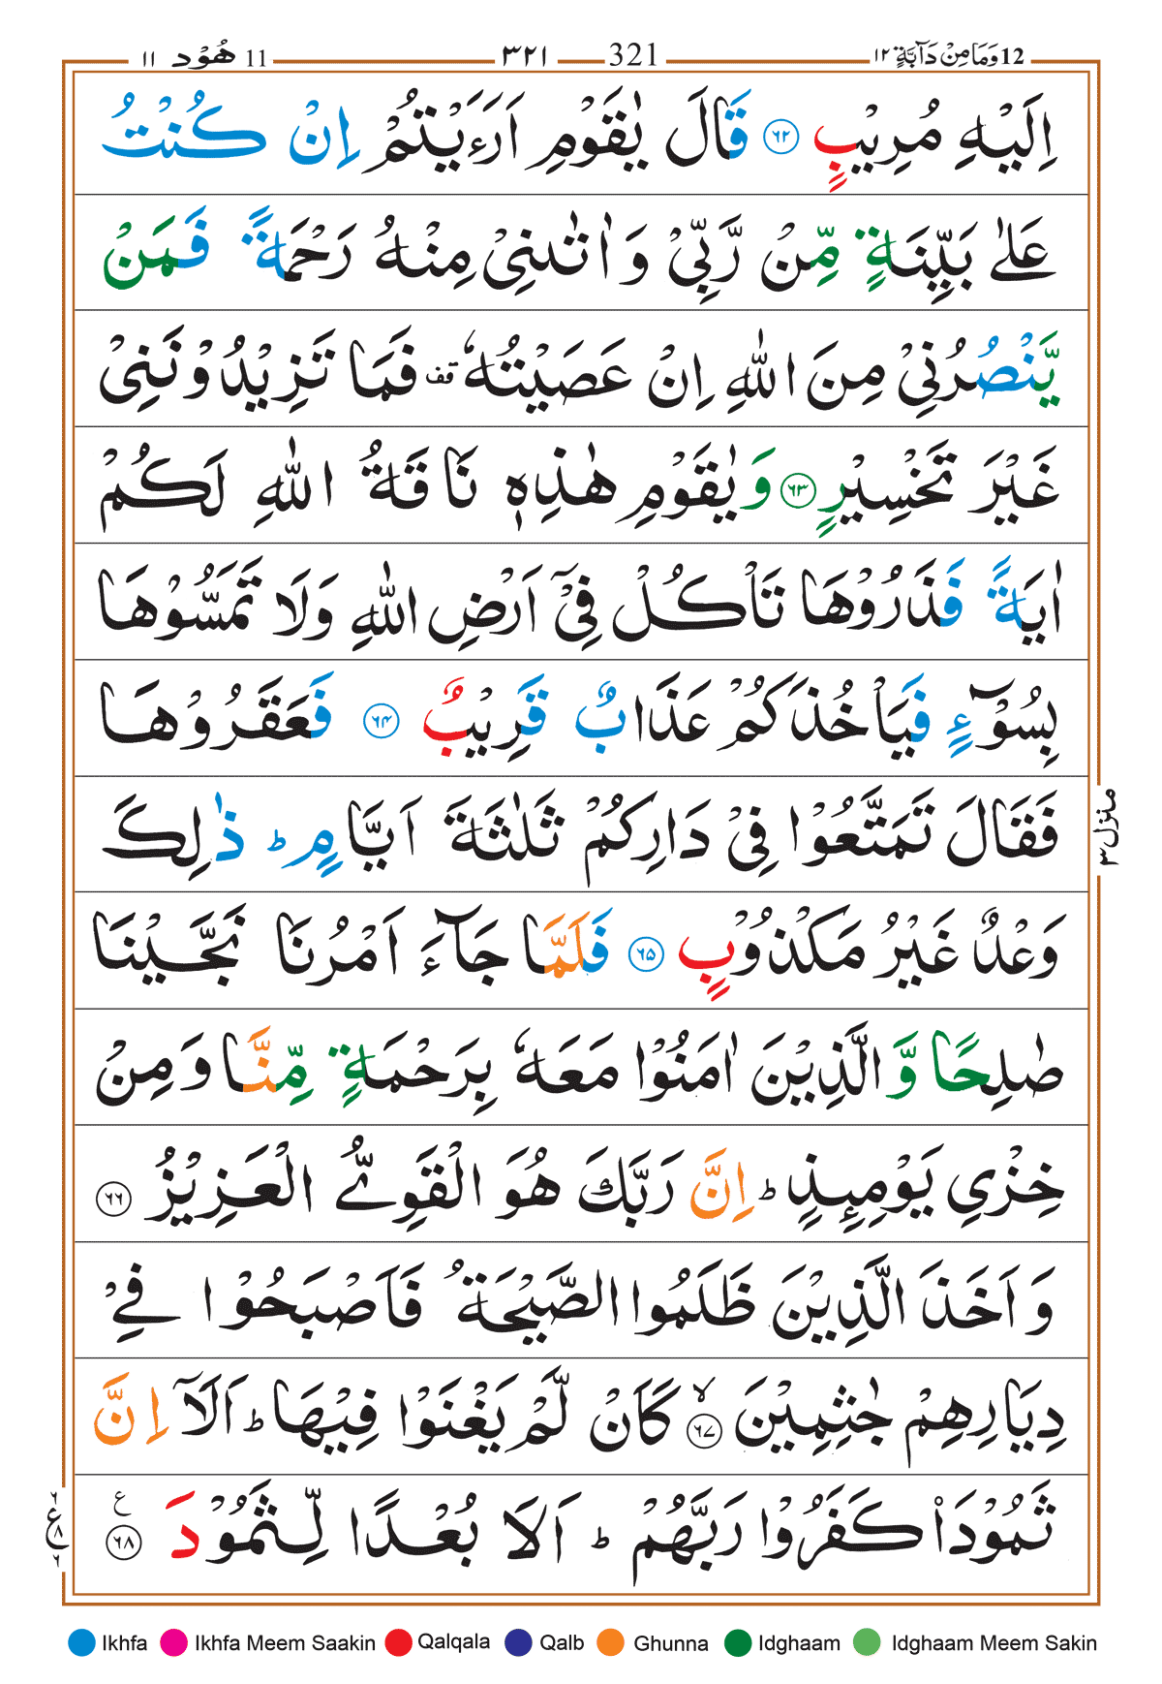 12 وَمَا مِنْ دَآبَّةٍ ١٢ 321 ٣٢١ 11 هُوْد ١١
اِلَيْهِ مُرِيْبٍ ﴿۶۲﴾ قَالَ يٰقَوْمِ اَرَءَيْتُمْ اِنْ كُنْتُ
عَلٰى بَيِّنَةٍ مِّنْ رَّبِّيْ وَاٰتٰىنِيْ مِنْهُ رَحْمَةً فَمَنْ
يَّنْصُرُنِيْ مِنَ اللّٰهِ اِنْ عَصَيْتُهٗ قف فَمَا تَزِيْدُوْنَنِيْ
غَيْرَ تَخْسِيْرٍ ﴿۶۳﴾ وَيٰقَوْمِ هٰذِهٖ نَاقَةُ اللّٰهِ لَكُمْ
اٰيَةً فَذَرُوْهَا تَاْكُلْ فِيْٓ اَرْضِ اللّٰهِ وَلَا تَمَسُّوْهَا
بِسُوْٓءٍ فَيَاْخُذَكُمْ عَذَابٌ قَرِيْبٌ ﴿۶۴﴾ فَعَقَرُوْهَا
فَقَالَ تَمَتَّعُوْا فِيْ دَارِكُمْ ثَلٰثَةَ اَيَّامٍ ؕ ذٰلِكَ
وَعْدٌ غَيْرُ مَكْذُوْبٍ ﴿۶۵﴾ فَلَمَّا جَآءَ اَمْرُنَا نَجَّيْنَا
صٰلِحًا وَّالَّذِيْنَ اٰمَنُوْا مَعَهٗ بِرَحْمَةٍ مِّنَّا وَمِنْ
خِزْيِ يَوْمِئِذٍ ؕ اِنَّ رَبَّكَ هُوَ الْقَوِيُّ الْعَزِيْزُ ﴿۶۶﴾
وَاَخَذَ الَّذِيْنَ ظَلَمُوا الصَّيْحَةُ فَاَصْبَحُوْا فِيْ
دِيَارِهِمْ جٰثِمِيْنَ ﴿۶۷﴾ ۙ كَاَنْ لَّمْ يَغْنَوْا فِيْهَا ؕ اَلَآ اِنَّ
ثَمُوْدَا۟ كَفَرُوْا رَبَّهُمْ ؕ اَلَا بُعْدًا لِّثَمُوْدَ ﴿۶۸﴾ ع
منزل ۳
Ikhfa Ikhfa Meem Saakin Qalqala Qalb Ghunna Idghaam Idghaam Meem Sakin